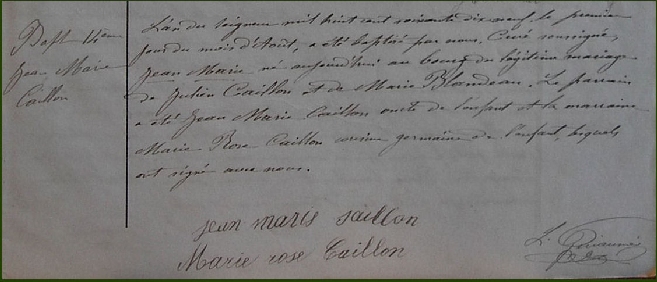 Bapt. 14em
Jean Marie
Caillon
L'an du seigneur mil huit cent soixante dix neuf, le premier
jour du mois d'Août, a été baptisé par nous, Curé soussigné,
Jean Marie né aujourd'hui au bourg du légitime mariage
de Julien Caillon et de Marie Blandeau. Le parrain
a été Jean Marie Caillon oncle de l'enfant et la marraine
Marie Rose Caillon cousine germaine de l'enfant, lesquels
ont signé avec nous.
jean marie Caillon
Marie rose Caillon